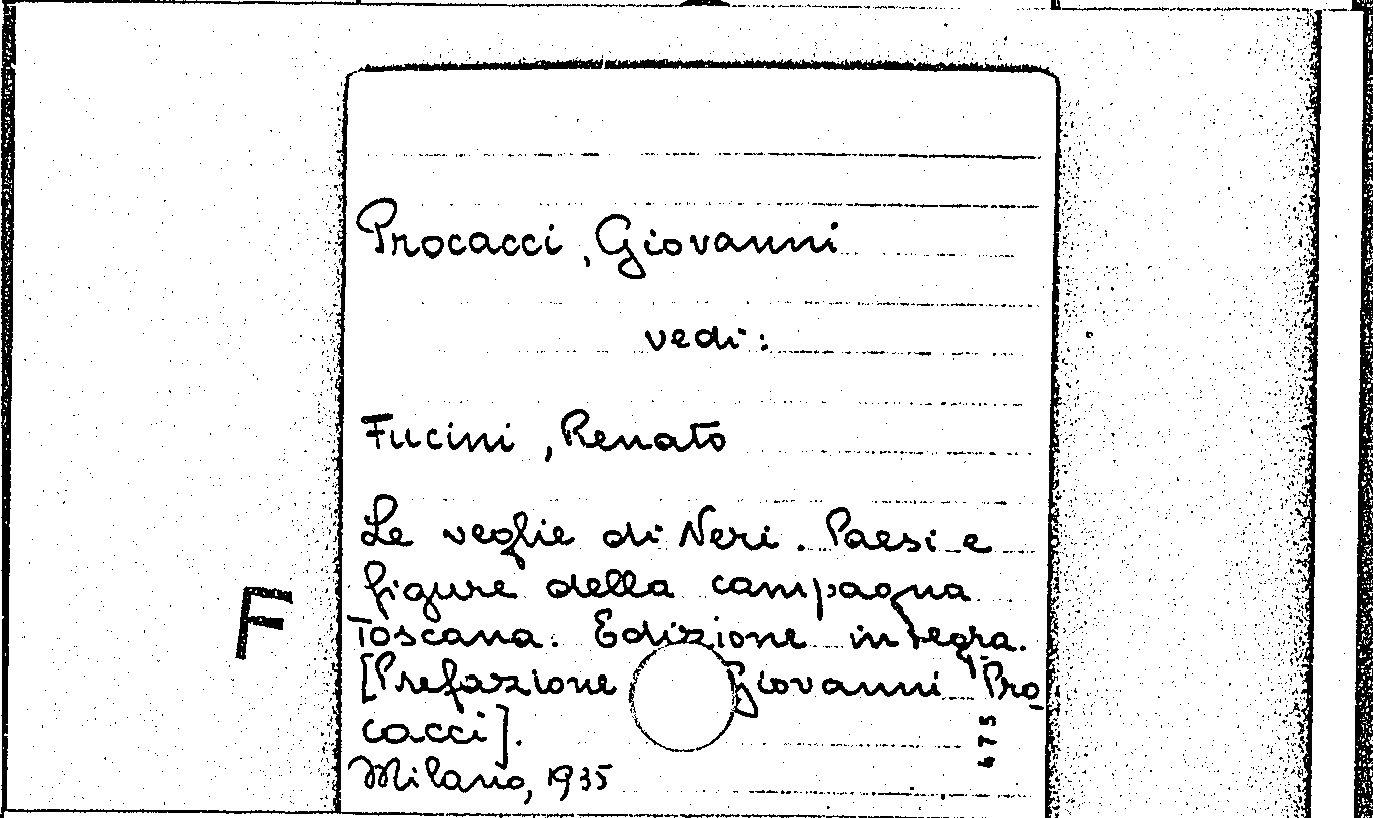 Procacci, Giovanni
vedi:
Fucini, Renato
Le veglie di Neri. Paesi e
figure della campagna
Toscana. Edizione integra.
F
[Prefazione Giovanni Pro-
cacci].
675
Milano, 1935